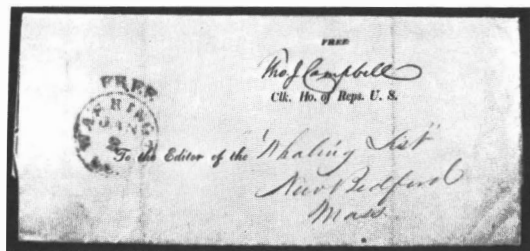 FREE
Tho J Campbell
Clk. Ho. of Reps. U. S.
FREE
WASHING
JAN
To the Editor of the "Whaling List"
New Bedford
Mass.